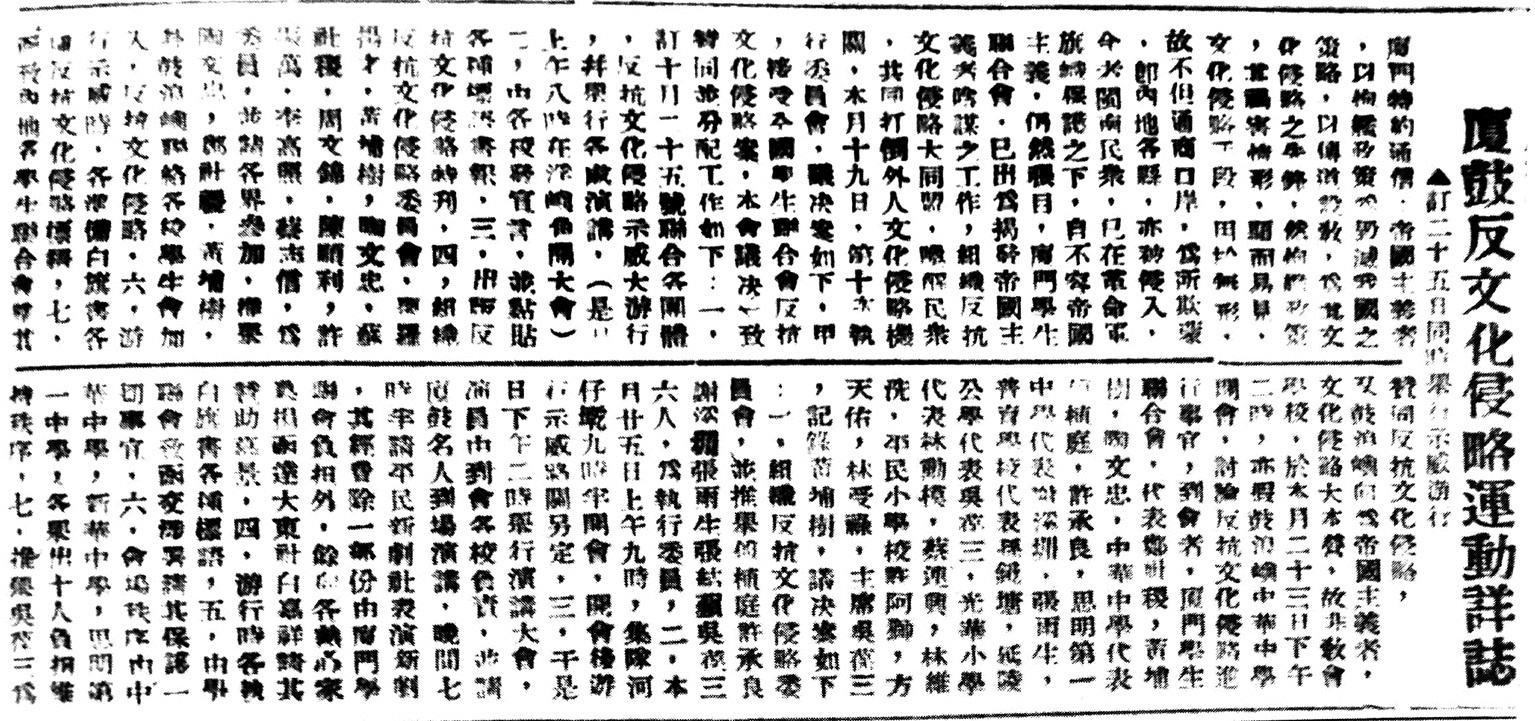 廈鼓反文化侵略運動詳誌
▲訂二十五日同時舉行示威游行
廈門特約通信、帝國主義者
，以砲艦政策為勦滅我國之
策略，以傳道設教，為其文
化侵略之先鋒，然砲艦政策
，其禍害情形，顯而易見，
文化侵略手段，出於無形，
故不但通商口岸，為所欺蒙
，即內地各縣，亦被侵入，
今者閩南民眾，已在革命軍
旗幟保護之下，自不容帝國
主義，仍然橫目，廈門學生
聯合會，已出為揭發帝國主
義者陰謀之工作，組織反抗
文化侵略大同盟，喚醒民眾
，共同打倒外人文化侵略機
關，本月十九日，第十次執
行委員會，議决案如下，甲
，接受全國學生聯合會反抗
文化侵略案，本會議决一致
贊同並分配工作如下：一，
訂十月二十五號聯合各團體
，反抗文化侵略示威大游行
，并舉行各處演講，（是日
上午八時在浮嶼角開大會）
二，由各校發宣言，並點貼
各種壞誤書報，三，出版反
抗文化侵略特刊，四，組織
反抗文化侵略委員會，
才，黃埔樹，陶文忠，蘇
社稷，周文錦，陳順利，許
萬，李高照，蘇志信，為
委員，並請各界參加，推舉
陶文忠，鄭社稷，黃埔樹，
赴鼓浪嶼聯絡各幼學生會加
入，反抗文化侵略，六，游
行示威時，各準備白旗書各
種反抗文化侵略標語，七，
函致內地各學生聯合會舉其
贊同反抗文化侵略，
又鼓浪嶼向為帝國主義者，
文化侵略大本營，故非教會
學校，於本月二十三日下午
二時，亦假鼓浪嶼中華中學
開會，討論反抗文化侵略進
行事宜，到會者，廈門學生
聯合會，代表鄭社稷，黃埔
樹，陶文忠，中華中學代表
植庭，許承良，思明第一
中學代表謝深圳，張雨生，
普育學校代表孫鏡塘，延陵
公學代表吳葆三，光華小學
代表林勳模，蔡連興，林維
洗，平民小學校許阿獅，方
天佑，林受祿，主席吳葆三
，記錄黃埔樹，議决案如下
：一，組織反抗文化侵略委
員會，並推舉傅植庭許承良
謝深圳張雨生張結蘋吳葆三
六人，為執行委員，二，本
月廿五日上午九時，集隊河
仔墘九時半開會，開會後游
行示威路關另定，三，于是
日下午二時舉行演講大會，
演員由到會各校負責，並請
廈鼓名人到場演講，晚間七
時半請平民新劇社表演新劇
，其經費除一部份由廈門學
聯會負担外，餘向各熱心家
負担函達大東社白嘉祥請其
贊助意景，四，游行時各執
白旗書各種標語，五，由學
聯會致函交涉署請其保護一
切事宜，六，會場秩序由中
華中學，新華中學，思明第
一中學，各舉出十人負担維
持秩序，七，推舉吳葆三為